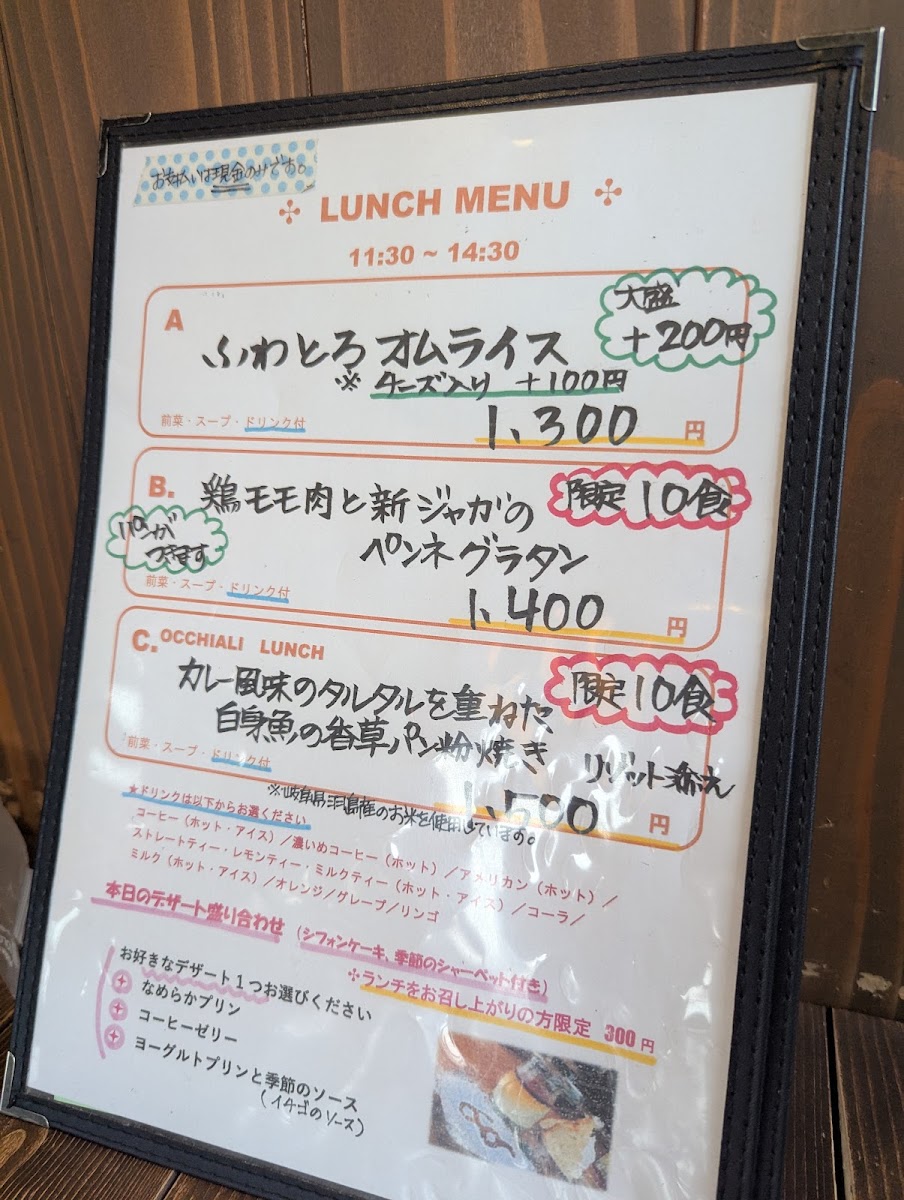 お支払いは現金のみです。
LUNCH MENU
11:30 ~ 14:30
A
大盛
+200円
ふわとろ オムライス
※ チーズ入り +100円
前菜・スープ・ドリンク付
1,300 円
B.
鶏モモ肉と新ジャガの
限定10食
ペンネグラタン
パンが
つきます
前菜・スープ・ドリンク付
1,400 円
C. OCCHIALI LUNCH
カレー風味のタルタルを重ねた
限定10食
白身魚の香草パン粉焼き
リゾット添え
前菜・スープ・ドリンク付
1,500 円
※岐阜県羽島産のお米を使用しています。
★ドリンクは以下からお選びください
コーヒー(ホット・アイス)/濃いめコーヒー(ホット)/アメリカン(ホット)/
ストレートティー・レモンティー・ミルクティー(ホット・アイス)/コーラ/
ミルク(ホット・アイス)/オレンジ/グレープ/リンゴ
本日のデザート盛り合わせ (シフォンケーキ、季節のシャーベット付き)
※ランチをお召し上がりの方限定 300円
お好きなデザート1つお選びください
なめらかプリン
コーヒーゼリー
ヨーグルトプリンと季節のソース
(イチゴのソース)